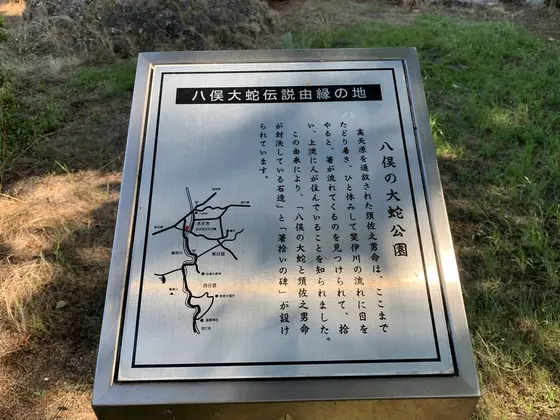 八俣大蛇伝説由縁の地
八俣の大蛇公園
高天原を追放された須佐之男命は、ここまで
たどり着き、ひと休みして斐伊川の流れに目を
やると、箸が流れてくるのを見つけられて、拾
い、上流に人が住んでいることを知られました。
この由来により、「八俣の大蛇と須佐之男命
が対決している石造」と「箸拾いの碑」が設け
られています。